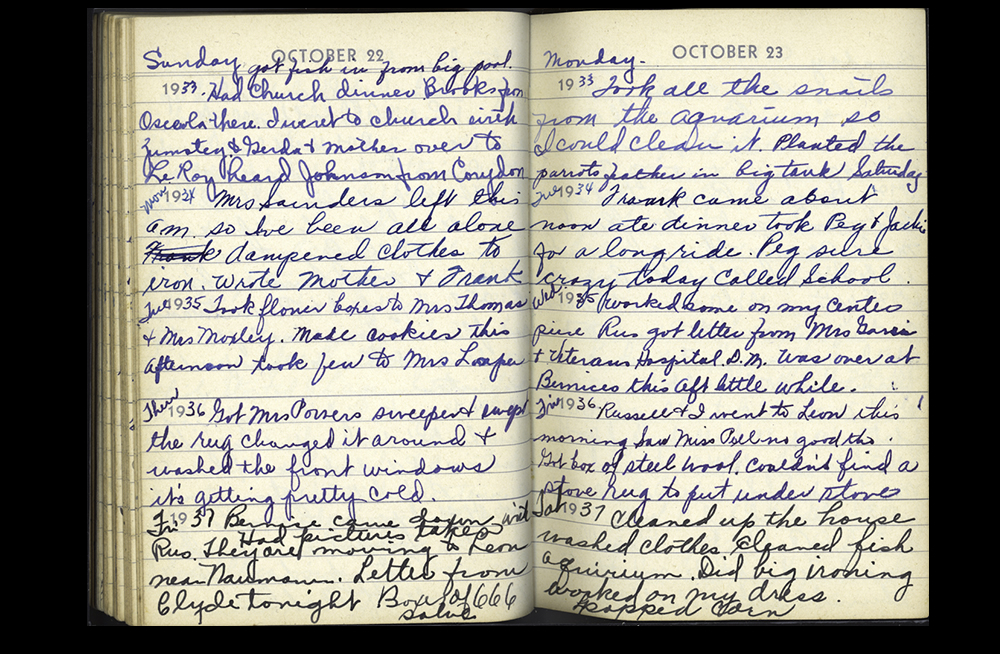 OCTOBER 22
Sunday got fish in from big pool.
1933. Had Church dinner Brooks from
Osceola there. I went to church with
& Gerda & Mother over to
Le Roy heard Johnson from Corydon
Mon 1934 Mrs Saunders left this
a.m. so I've been all alone
Frank dampened clothes to
iron. Wrote Mother & Frank
Tue 1935 Took flower boxes to Mrs Thomas
& Mrs Moxley. Made cookies this
afternoon took few to Mrs
Thur 1936 Got Mrs Powers sweeper & swept
the rug changed it around &
washed the front windows
it's getting pretty cold.
Fri 1937 Bernice came down with
Had pictures taken
Rus. They are moving to Leon
near Naumann. Letter from
Clyde tonight Box of 666
salve
OCTOBER 23
Monday.
1933 Took all the snails
from the aquarium so
I could clean it. Planted the
parrots feather in big tank Saturday
Tue 1934 Frank came about
noon ate dinner took Peg & Jackie
for a long ride. Peg sure
crazy today Called School.
Wed 1935 Worked some on my center
piece Rus got letter from Mrs
& Veterans Hospital. D.M. Was over at
Bernices this aft little while.
Fri 1936 Russell & I went to Leon this
morning Saw Miss Pell no good tho.
Got box of steel wool. Couldn't find a
stove rug to put under stove
Sat 1937 Cleaned up the house
washed clothes, cleaned fish
aquirium. Did big ironing
worked on my dress.
popped corn